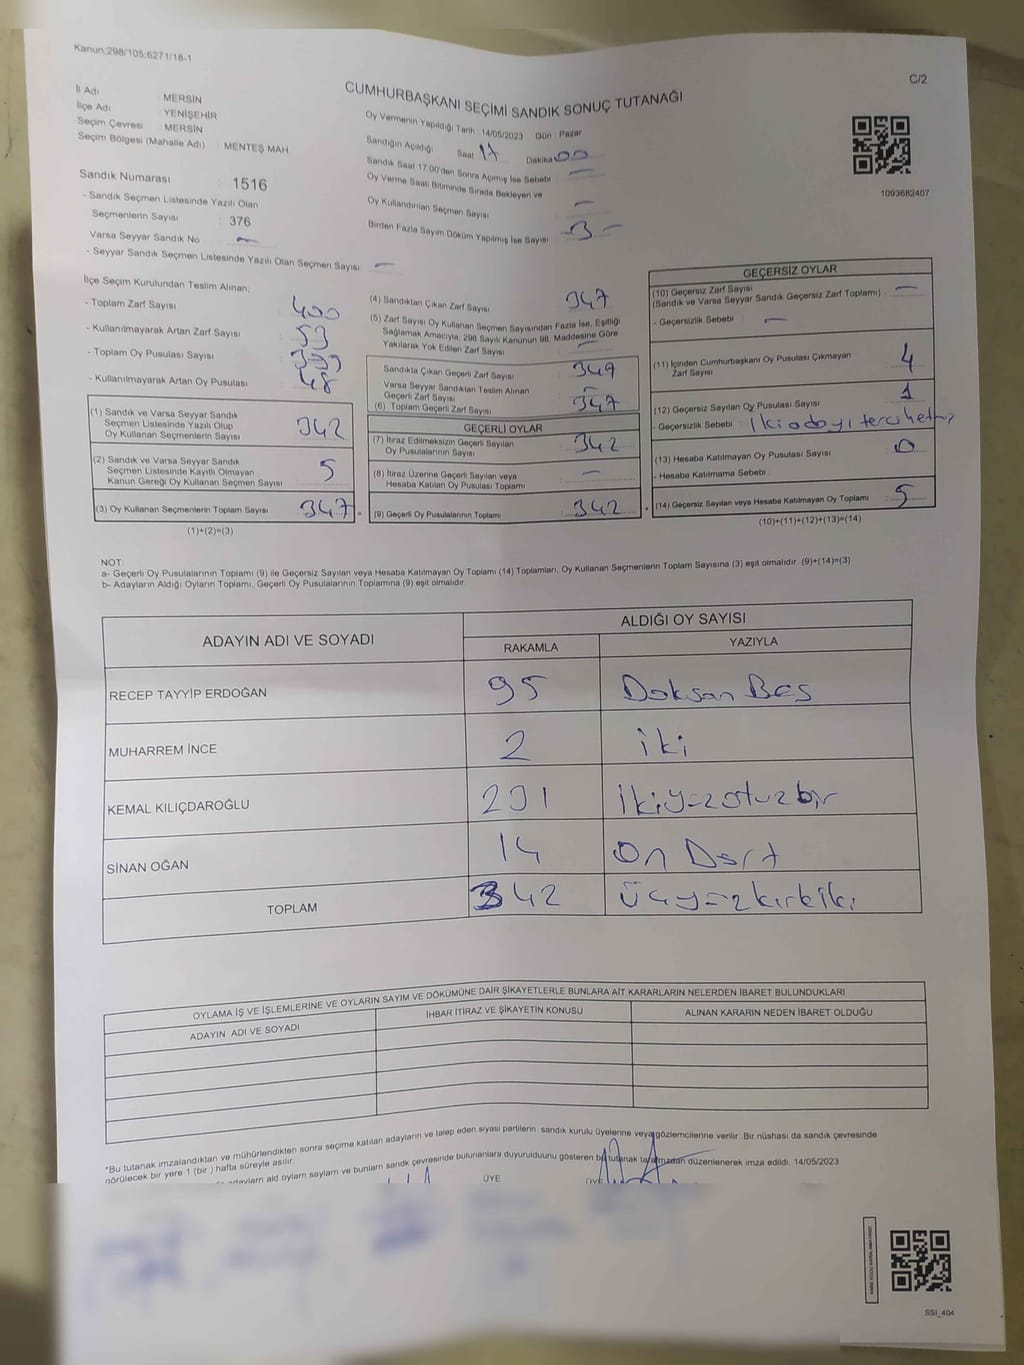 Kanun;298/105;6271/18-1
C/2
CUMHURBAŞKANI SEÇİMİ SANDIK SONUÇ TUTANAĞI
İl Adı : MERSİN
İlçe Adı : YENİŞEHİR
Seçim Çevresi : MERSİN
Seçim Bölgesi (Mahalle Adı) : MENTEŞ MAH.
Sandık Numarası : 1516
- Sandık Seçmen Listesinde Yazılı Olan
Seçmenlerin Sayısı : 376
Varsa Seyyar Sandık No –
- Seyyar Sandık Seçmen Listesinde Yazılı Olan Seçmen Sayısı : –
Oy Vermenin Yapıldığı Tarih : 14/05/2023 Gün : Pazar
Sandığın Açıldığı Saat 17 Dakika 00
Sandık Saat 17:00'den Sonra Açılmış İse Sebebi : –
Oy Verme Saati Bitiminde Sırada Bekleyen ve
Oy Kullandırılan Seçmen Sayısı –
Birden Fazla Sayım Döküm Yapılmış İse Sayısı -3-
1093682407
İlçe Seçim Kurulundan Teslim Alınan;
- Toplam Zarf Sayısı : 400
- Kullanılmayarak Artan Zarf Sayısı : 53
- Toplam Oy Pusulası Sayısı :
- Kullanılmayarak Artan Oy Pusulası : 48
(1) Sandık ve Varsa Seyyar Sandık
Seçmen Listesinde Yazılı Olup
Oy Kullanan Seçmenlerin Sayısı : 342
(2) Sandık ve Varsa Seyyar Sandık
Seçmen Listesinde Kayıtlı Olmayan
Kanun Gereği Oy Kullanan Seçmen Sayısı : 5
(3) Oy Kullanan Seçmenlerin Toplam Sayısı : 347
(1)+(2)=(3)
(4) Sandıktan Çıkan Zarf Sayısı : 347
(5) Zarf Sayısı Oy Kullanan Seçmen Sayısından Fazla İse, Eşitliği
Sağlamak Amacıyla; 298 Sayılı Kanunun 98. Maddesine Göre
Yakılarak Yok Edilen Zarf Sayısı : –
Sandıkta Çıkan Geçerli Zarf Sayısı : 347
Varsa Seyyar Sandıktan Teslim Alınan
Geçerli Zarf Sayısı : –
(6) Toplam Geçerli Zarf Sayısı : 347
GEÇERLİ OYLAR
(7) İtiraz Edilmeksizin Geçerli Sayılan
Oy Pusulalarının Sayısı : 342
(8) İtiraz Üzerine Geçerli Sayılan veya
Hesaba Katılan Oy Pusulası Toplamı : –
(9) Geçerli Oy Pusulalarının Toplamı : 342
GEÇERSİZ OYLAR
(10) Geçersiz Zarf Sayısı
(Sandık ve Varsa Seyyar Sandık Geçersiz Zarf Toplamı) : –
- Geçersizlik Sebebi : –
(11) İçinden Cumhurbaşkanı Oy Pusulası Çıkmayan
Zarf Sayısı : 4
(12) Geçersiz Sayılan Oy Pusulası Sayısı : 1
- Geçersizlik Sebebi : İki adayı tercih etmiş
(13) Hesaba Katılmayan Oy Pusulası Sayısı : 0
- Hesaba Katılmama Sebebi :
(14) Geçersiz Sayılan veya Hesaba Katılmayan Oy Toplamı : 5
(10)+(11)+(12)+(13)=(14)
NOT:
a- Geçerli Oy Pusulalarının Toplamı (9) ile Geçersiz Sayılan veya Hesaba Katılmayan Oy Toplamı (14) Toplamları, Oy Kullanan Seçmenlerin Toplam Sayısına (3) eşit olmalıdır. (9)+(14)=(3)
b- Adayların Aldığı Oyların Toplamı, Geçerli Oy Pusulalarının Toplamına (9) eşit olmalıdır.
ADAYIN ADI VE SOYADI ALDIĞI OY SAYISI
RAKAMLA YAZIYLA
RECEP TAYYİP ERDOĞAN 95 Doksan Beş
MUHARREM İNCE 2 iki
KEMAL KILIÇDAROĞLU 231 İkiyüzotuzbir
SİNAN OĞAN 14 On Dört
TOPLAM 342 Üçyüzkırkiki
OYLAMA İŞ VE İŞLEMLERİNE VE OYLARIN SAYIM VE DÖKÜMÜNE DAİR ŞİKAYETLERLE BUNLARA AİT KARARLARIN NELERDEN İBARET BULUNDUKLARI
ADAYIN ADI VE SOYADI İHBAR İTİRAZ VE ŞİKAYETİN KONUSU ALINAN KARARIN NEDEN İBARET OLDUĞU
*Bu tutanak imzalandıktan ve mühürlendikten sonra seçime katılan adayların ve talep eden siyasi partilerin sandık kurulu üyelerine veya gözlemcilerine verilir. Bir nüshası da sandık çevresinde
görülecek bir yere 1 (bir ) hafta süreyle asılır.
adayların ald oyların sayların ve bunların sandık çevresinde bulunanlara duyurulduunu gösteren bu tutanak tarafımızdan düzenlenerek imza edildi. 14/05/2023
ÜYE
SSI_404